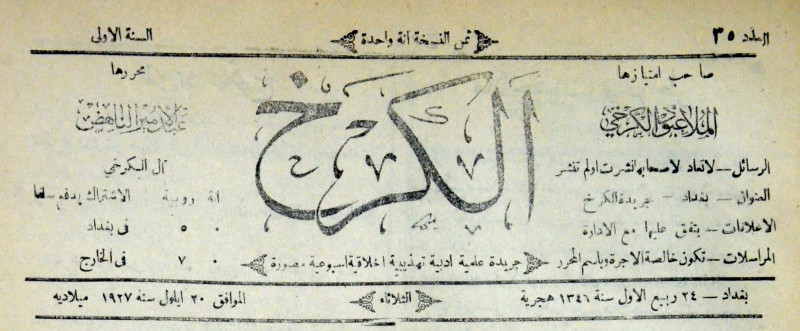 العدد ٣٥
ثمن النسخة آنة واحدة
السنة الاولى
صاحب امتيازها
الملا عبود الكرخي
الرسائل — لاتعاد لاصحابها نشرت اولم تنشر
العنوان — بغداد — جريدة الكرخ
الاعلانات — يتفق عليها مع الادارة
المراسلات — تكون خالصة الاجرة وباسم المحرر
الكرخ
جريدة علمية ادبية تهذيبية اخلاقية اسبوعية مصورة
محررها
عبد الامير الناهض
آل الكرخي
انة روبية الاشتراك يدفع سلفا
٠ ٥ في بغداد
٠ ٧ في الخارج
بغداد — ٢٤ ربيع الاول سنة ١٣٤٦ هجرية
الثلاثاء
الموافق ٢٠ ايلول سنة ١٩٢٧ ميلاديه